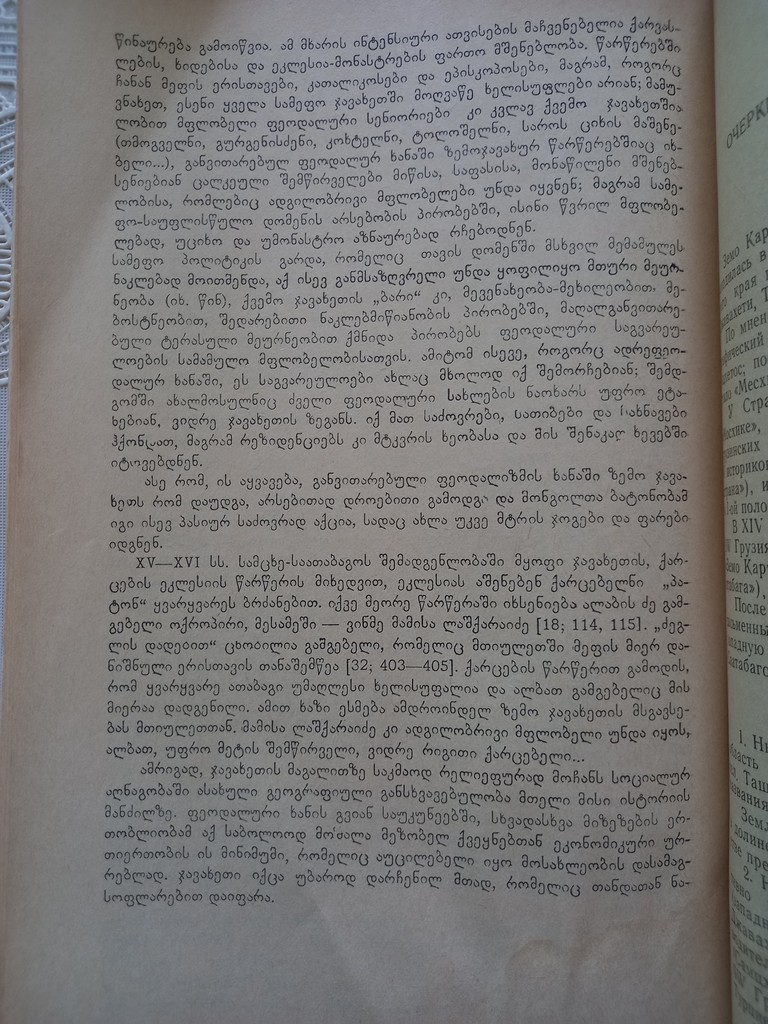 წინაურება გამოიწვია. ამ მხარის ინტენსიური ათვისების მაჩვენებელია ქარვას-
ლების, ხიდებისა და ეკლესია-მონასტრების ფართო მშენებლობა. წარწერებში
ჩანან მეფის ერისთავები, კათალიკოსები და ეპისკოპოსები, მაგრამ, როგორც
ვნახეთ, ესენი ყველა სამეფო ჯავახეთში მოღვაწე ხელისუფლები არიან; მამუ-
ლობით მფლობელი ფეოდალური სენიორიები კი კვლავ ქვემო ჯავახეთშია
(თმოგველნი, გურგენისძენი, კოხტელნი, ტოლოშელნი, საროს ციხის მაშენე-
ბელი...), განვითარებულ ფეოდალურ ხანაში ზემოჯავახურ წარწერებშიაც იხ-
სენიებიან ცალკეული შემწირველები მიწისა, საფასისა, მონაწილენი მშენებ-
ლობისა, რომლებიც ადგილობრივი მფლობელები უნდა იყვნენ; მაგრამ სამე-
ფო-საუფლისწულო დომენის არსებობის პირობებში, ისინი წვრილ მფლობე-
ლებად, უციხო და უმონასტრო აზნაურებად რჩებოდნენ.
სამეფო პოლიტიკის გარდა, რომელიც თავის დომენში მსხვილ მემამულეს
ნაკლებად მოითმენდა, აქ ისევ განმსაზღვრელი უნდა ყოფილიყო მთური მეურ-
ნეობა (იხ. წინ), ქვემო ჯავახეთის „ბარი“ კი, მევენახეობა-მეხილეობით, მე-
ბოსტნეობით, შედარებითი ნაკლებმიწიანობის პირობებში, მაღალგანვითარე-
ბული ტერასული მეურნეობით ქმნიდა პირობებს ფეოდალური საგვარეუ-
ლოების სამამულო მფლობელობისათვის. ამიტომ ისევე, როგორც ადრეფეო-
დალურ ხანაში, ეს საგვარეულოები ახლაც მხოლოდ იქ შემორჩებიან; შემდ-
გომში ახალმოსულნიც ძველი ფეოდალური სახლების ნაოხარს უფრო ეტა-
ნებიან, ვიდრე ჯავახეთის ზეგანს. იქ მათ საძოვრები, სათიბები და სახნავები
ჰქონდათ, მაგრამ რეზიდენციებს კი მტკვრის ხეობასა და მის შენაკად ხევებში
იტოვებდნენ.
ასე რომ, ის აყვავება, განვითარებული ფეოდალიზმის ხანაში ზემო ჯავა-
ხეთს რომ დაუდგა, არსებითად დროებითი გამოდგა და მონგოლთა ბატონობამ
იგი ისევ პასიურ საძოვრად აქცია, სადაც ახლა უკვე მტრის ჯოგები და ფარები
იდგნენ.
XV—XVI სს. სამცხე-საათაბაგოს შემადგენლობაში მყოფი ჯავახეთის, ქარ-
ცების ეკლესიის წარწერის მიხედვით, ეკლესიას აშენებენ ქარცებელნი „პა-
ტონ“ ყვარყვარეს ბრძანებით. იქვე მეორე წარწერაში იხსენიება ალაბის ძე გამ-
გებელი ოქროპირი, მესამეში — ვინმე მამისა ლაშქარაიძე [18; 114, 115]. „ძეგ-
ლის დადებით“ ცხობილია გამგებელი, რომელიც მთიულეთში მეფის მიერ და-
ნიშნული ერისთავის თანაშემწეა [32; 403—405]. ქარცების წარწერით გამოდის,
რომ ყვარყვარე ათაბაგი უმაღლესი ხელისუფალია და ალბათ გამგებელიც მის
მიერაა დადგენილი. ამით ხაზი ესმება ამდროინდელ ზემო ჯავახეთის მსგავსე-
ბას მთიულეთთან. მამისა ლაშქარაიძე კი ადგილობრივი მფლობელი უნდა იყოს,
ალბათ, უფრო მეტის შემწირველი, ვიდრე რიგითი ქარცებელი...
ამრიგად, ჯავახეთის მაგალითზე საკმაოდ რელიეფურად მოჩანს სოციალურ
აღნაგობაში ასახული გეოგრაფიული განსხვავებულობა მთელი მისი ისტორიის
მანძილზე. ფეოდალური ხანის გვიან საუკუნეებში, სხვადასხვა მიზეზების ერ-
თობლიობამ აქ საბოლოოდ მოშალა მეზობელ ქვეყნებთან ეკონომიკური ურ-
თიერთობის ის მინიმუმი, რომელიც აუცილებელი იყო მოსახლეობის დასამაგ-
რებლად. ჯავახეთი იქცა უბაროდ დარჩენილ მთად, რომელიც თანდათან ნა-
სოფლარებით დაიფარა.
ОЧЕРК
Земо Кар
края
По мнен
«Месх
У Стра
историко
В XIV
Грузия
После
1. Н
Земл
2. Н